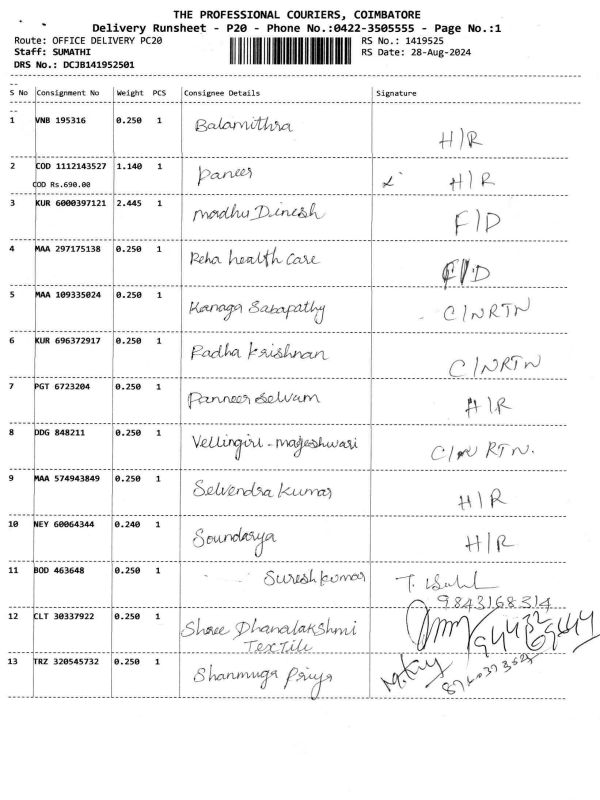 THE PROFESSIONAL COURIERS, COIMBATORE
Delivery Runsheet - P20 - Phone No.:0422-3505555 - Page No.:1
Route: OFFICE DELIVERY PC20 RS No.: 1419525
Staff: SUMATHI RS Date: 28-Aug-2024
DRS No.: DCJB141952501
S No Consignment No Weight PCS Consignee Details Signature
1 VNB 195316 0.250 1 Balamithra H/R
2 COD 1112143527 1.140 1 Paneer H/R
COD Rs.690.00
3 KUR 6000397121 2.445 1 madhu Dinesh F/D
4 MAA 297175138 0.250 1 Reha health care F/D
5 MAA 109335024 0.250 1 Kanaga Sabapathy C/NRTN
6 KUR 696372917 0.250 1 Radha krishnan C/NRTN
7 PGT 6723204 0.250 1 Panneer selvam H/R
8 DDG 848211 0.250 1 Vellingiri - mageshwari C/N RTN.
9 MAA 574943849 0.250 1 Selvendra kumar H/R
10 NEY 60064344 0.240 1 Soundarya H/R
11 BOD 463648 0.250 1 Suresh kumar T.
9843168314
12 CLT 30337922 0.250 1 Shree Dhanalakshmi
Textile
13 TRZ 320545732 0.250 1 Shanmuga Priya